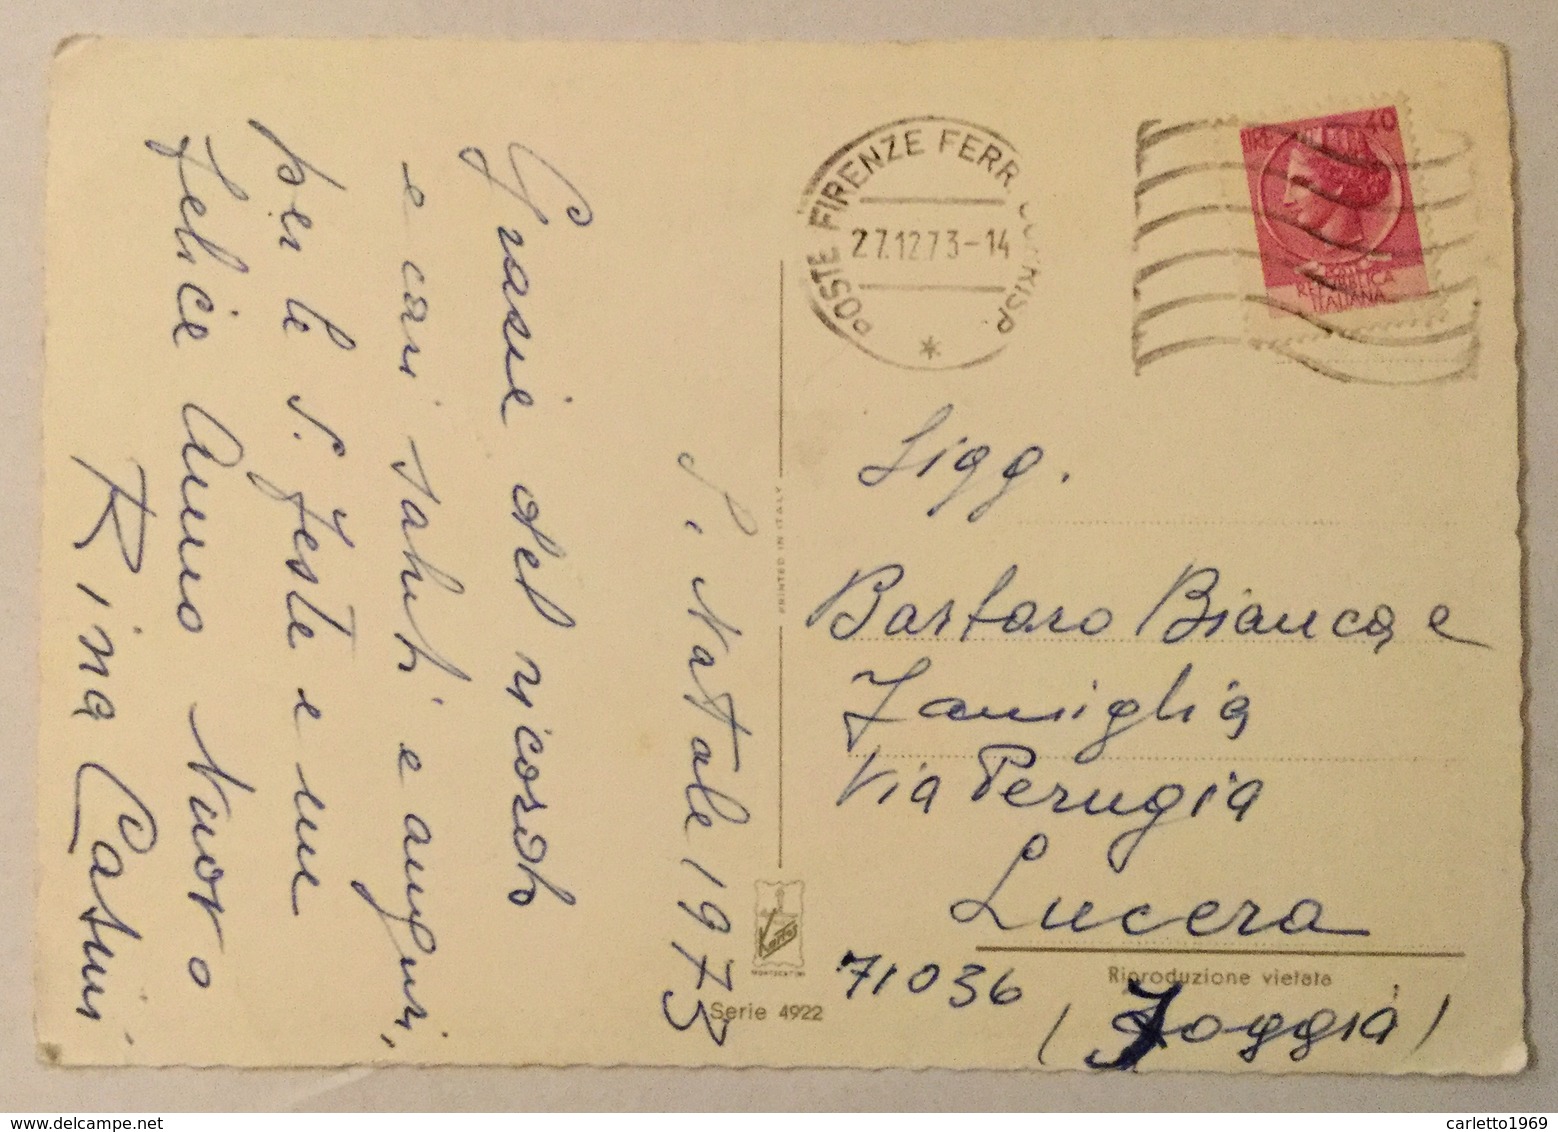 S. Natale 1973
Grazie del ricordo
e cari saluti e auguri,
per le S. Feste e un
felice Anno Nuovo
Rina Catini
POSTE FIRENZE FERR. CORRISP.
27.12.73-14
LIRE 40
POSTE
REPUBBLICA
ITALIANA
Sigg.
Bartoro Bianca e
Famiglia
Via Perugia
Lucera
71036
(Foggia)
PRINTED IN ITALY
Kartos
MONTECATINI
Serie 4922
Riproduzione vietata
carletto1969